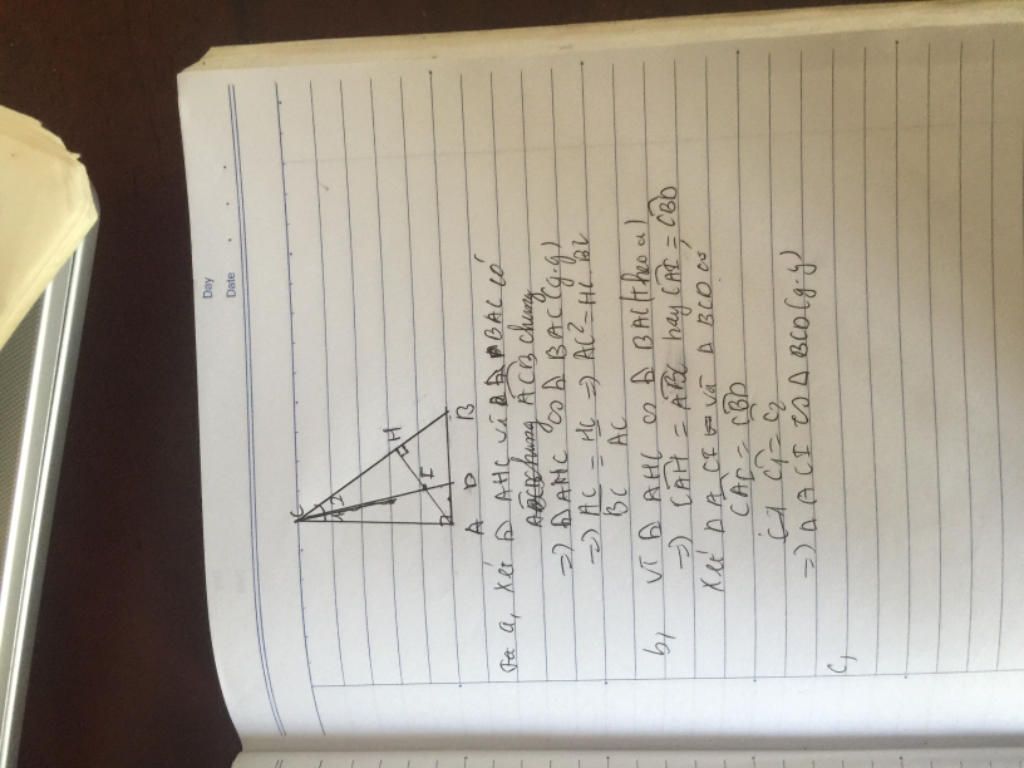 Day
Date
C
1 2
H
I
A D B
a, Xét Δ AHC và Δ BAC có
ACB chung
=) Δ AHC ∽ Δ BAC (g.g)
=) AC/BC = HC/AC =) AC² = HC. BC
b, Vì Δ AHC ∽ Δ BAC (theo a)
=) CAH = ABC hay CAI = CBD
Xét Δ ACI và Δ BCD có
CAI = CBD
C1 = C2
=) Δ ACI ∽ Δ BCD (g.g)
c,